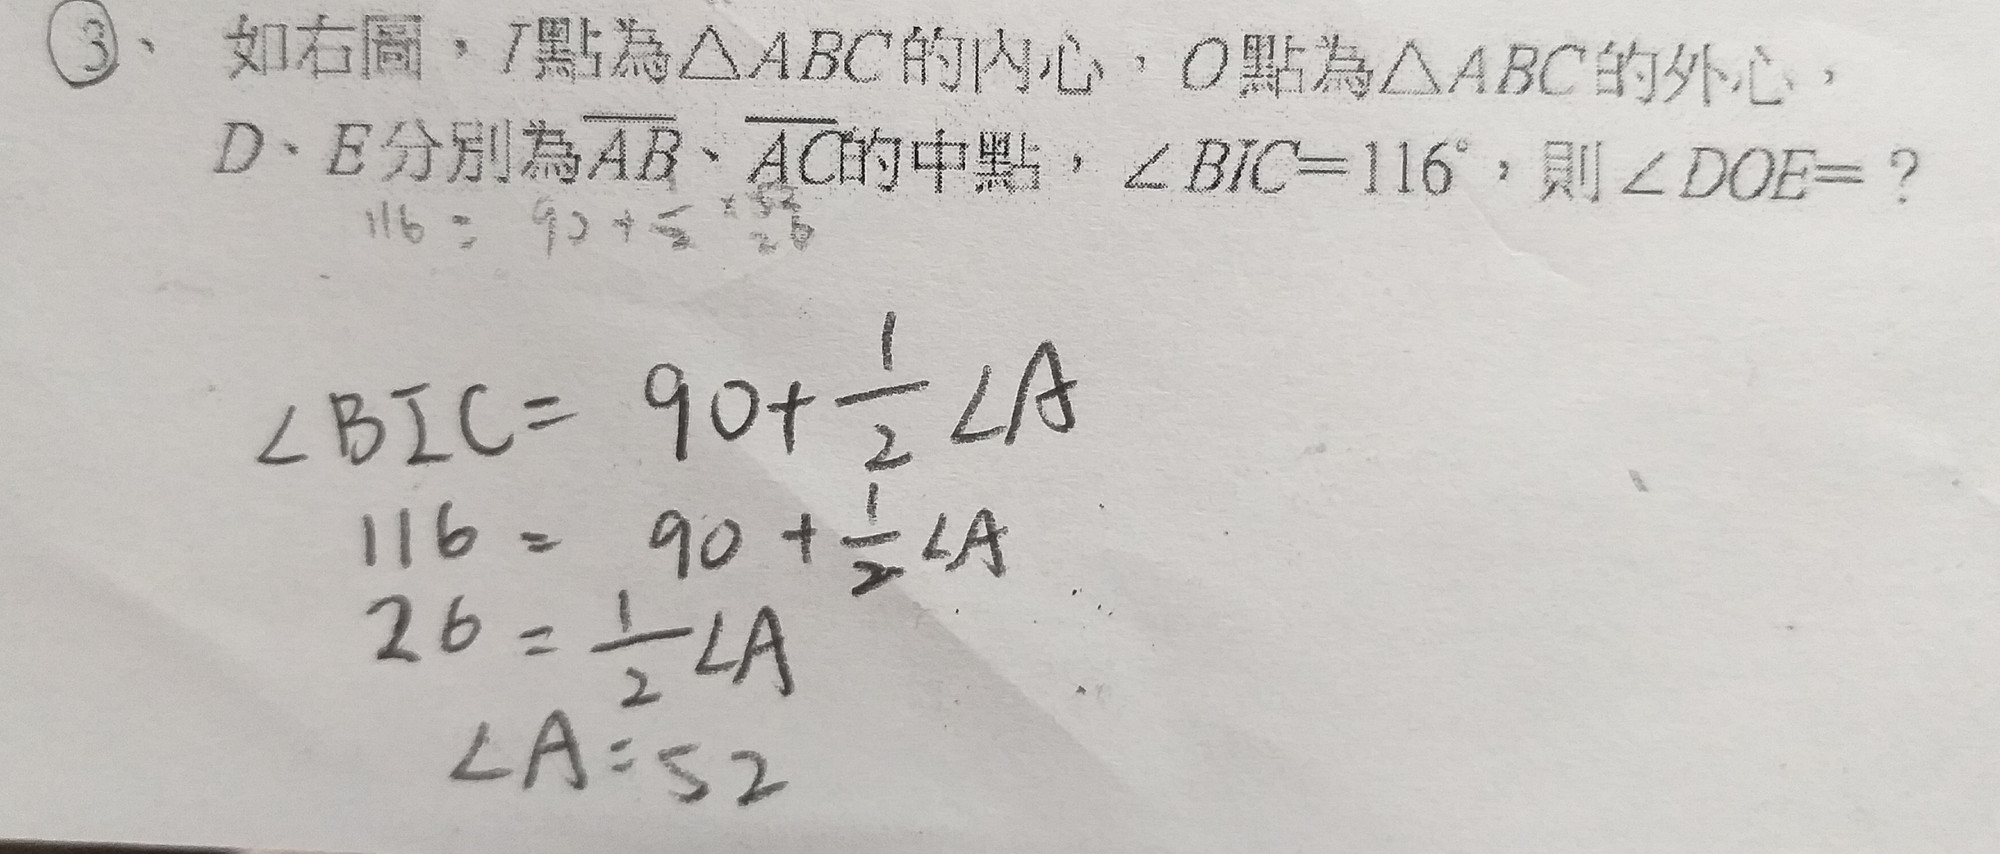 ③、如右圖，I點為△ABC的內心，O點為△ABC的外心，
D、E分別為AB、AC的中點，∠BIC=116°，則∠DOE=？
116 = 90 +
∠BIC = 90 + 1/2 ∠A
116 = 90 + 1/2 ∠A
26 = 1/2 ∠A
∠A = 52